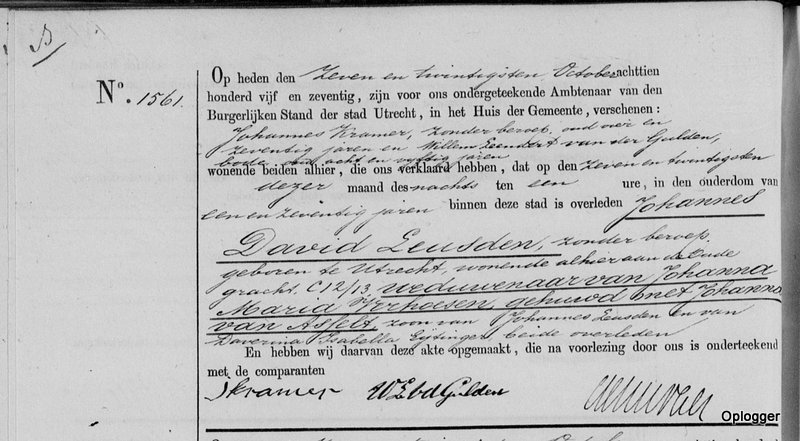 B
No. 1561.
Op heden den Zeven en twintigsten October achttien
honderd vijf en zeventig, zijn voor ons ondergeteekende Ambtenaar van den
Burgerlijken Stand der stad Utrecht, in het Huis der Gemeente, verschenen:
Johannes Kramer, zonder beroep, oud vier en
zeventig jaren en Willem Leendert van der Gulden,
bode, oud acht en vijftig jaren
wonende beiden alhier, die ons verklaard hebben, dat op den zeven en twintigsten
dezer maand des nachts ten een ure, in den ouderdom van
een en zeventig jaren binnen deze stad is overleden Johannes
David Leusden, zonder beroep,
geboren te Utrecht, wonende alhier aan de Oude
gracht C12/13 weduwenaar van Johanna
Maria Verhoesen, gehuwd met Johanna
van Asselt, zoon van Johannes Leusden en van
Isabella beide overleden
En hebben wij daarvan deze akte opgemaakt, die na voorlezing door ons is onderteekend
met de comparanten
JKramer WLvdGulden
Oplogger